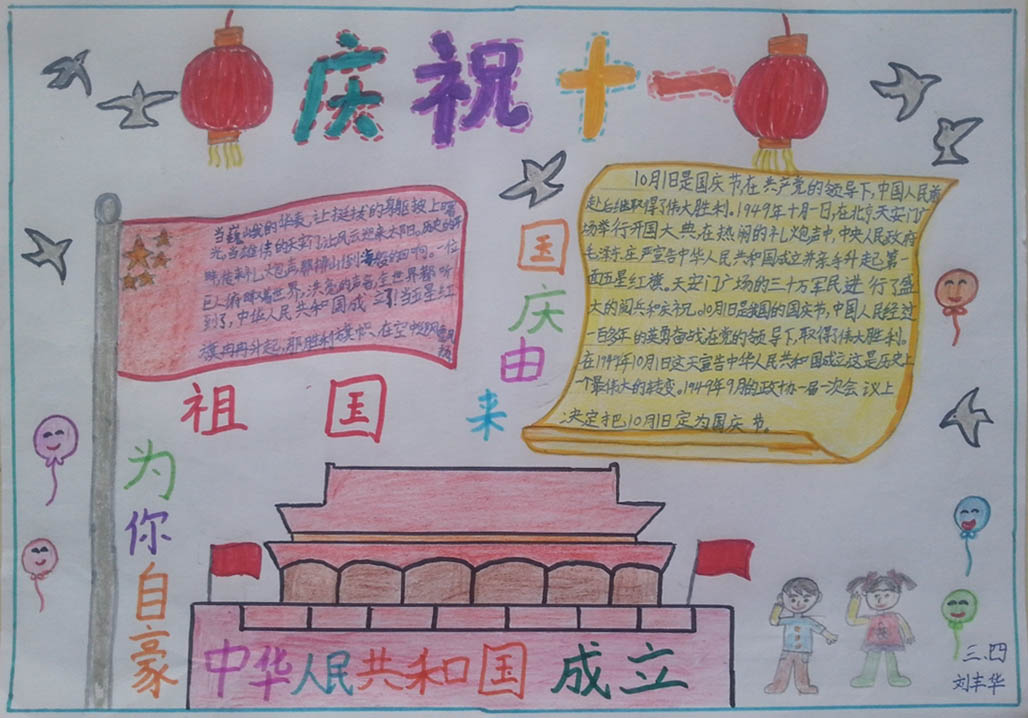 庆祝十一
当巍峨的华表,让挺拔的身躯披上曙
光,当雄伟的天安门,让风云迎来太阳,历史的
响。一位
巨人俯瞰着世界,洪亮的声音,全世界都听
到了,中华人民共和国成立了!当五星红
旗冉冉升起,那胜利旗帜,在空中
祖国
为你自豪
国庆由来
10月1日是国庆节,在共产党的领导下,中国人民前
赴后继取得了伟大胜利。1949年十月一日,在北京天安门广
场举行开国大典,在热闹的礼炮声中,中央人民政府
毛泽东,庄严宣告中华人民共和国成立并亲手升起第一
面五星红旗。天安门广场的三十万军民进行了盛
大的阅兵和庆祝。10月1日是我国的国庆节,中国人民经过
一百多年的英勇奋战在党的领导下,取得伟大胜利。
在1949年10月1日这天宣告中华人民共和国成立,这是历史上
一个最伟大的转变。1949年9月的政协一届一次会议上
决定把10月1日定为国庆节。
中华人民共和国成立
三.四
刘丰华